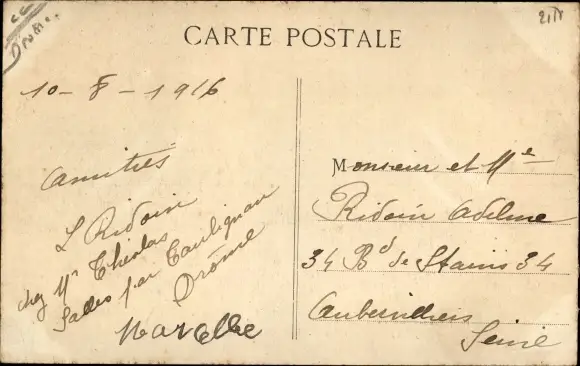 Drôme
CARTE POSTALE
10-8-1916
Amitiés
L Ridoin
chez Mr Thiolas
Salles par Taulignan
Drôme
Marcelle
Monsieur et Me
Ridoin Adelme
34 Bd de Stains 34
Aubervilliers
Seine